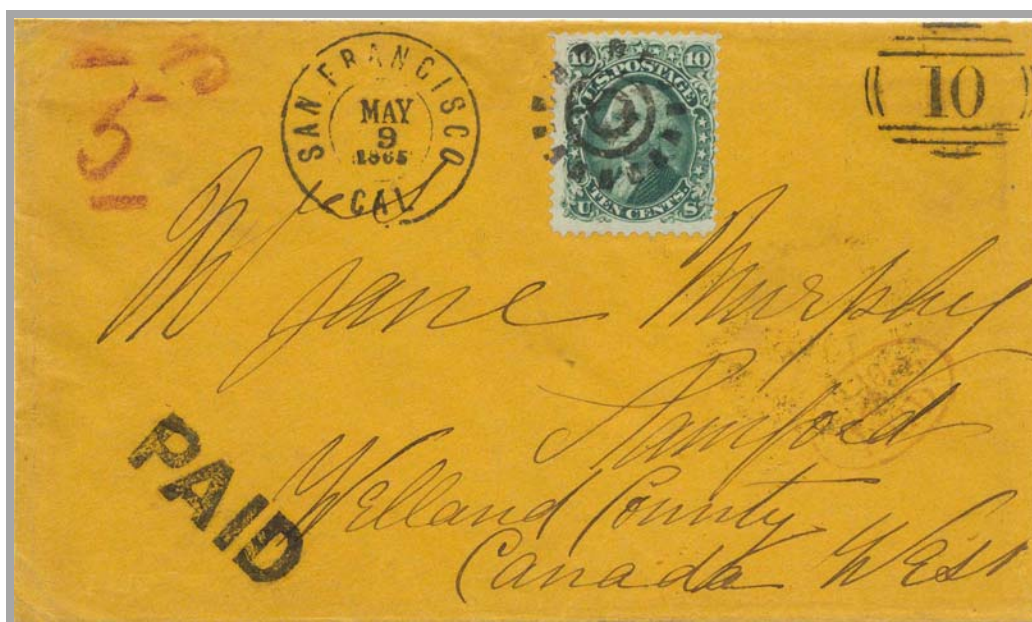 SAN FRANCISCO
MAY
9
1865
CAL
10 10
U.S. POSTAGE
TEN CENTS
U S
10
Jane Murphy
Stamford
PAID
Welland County
Canada West